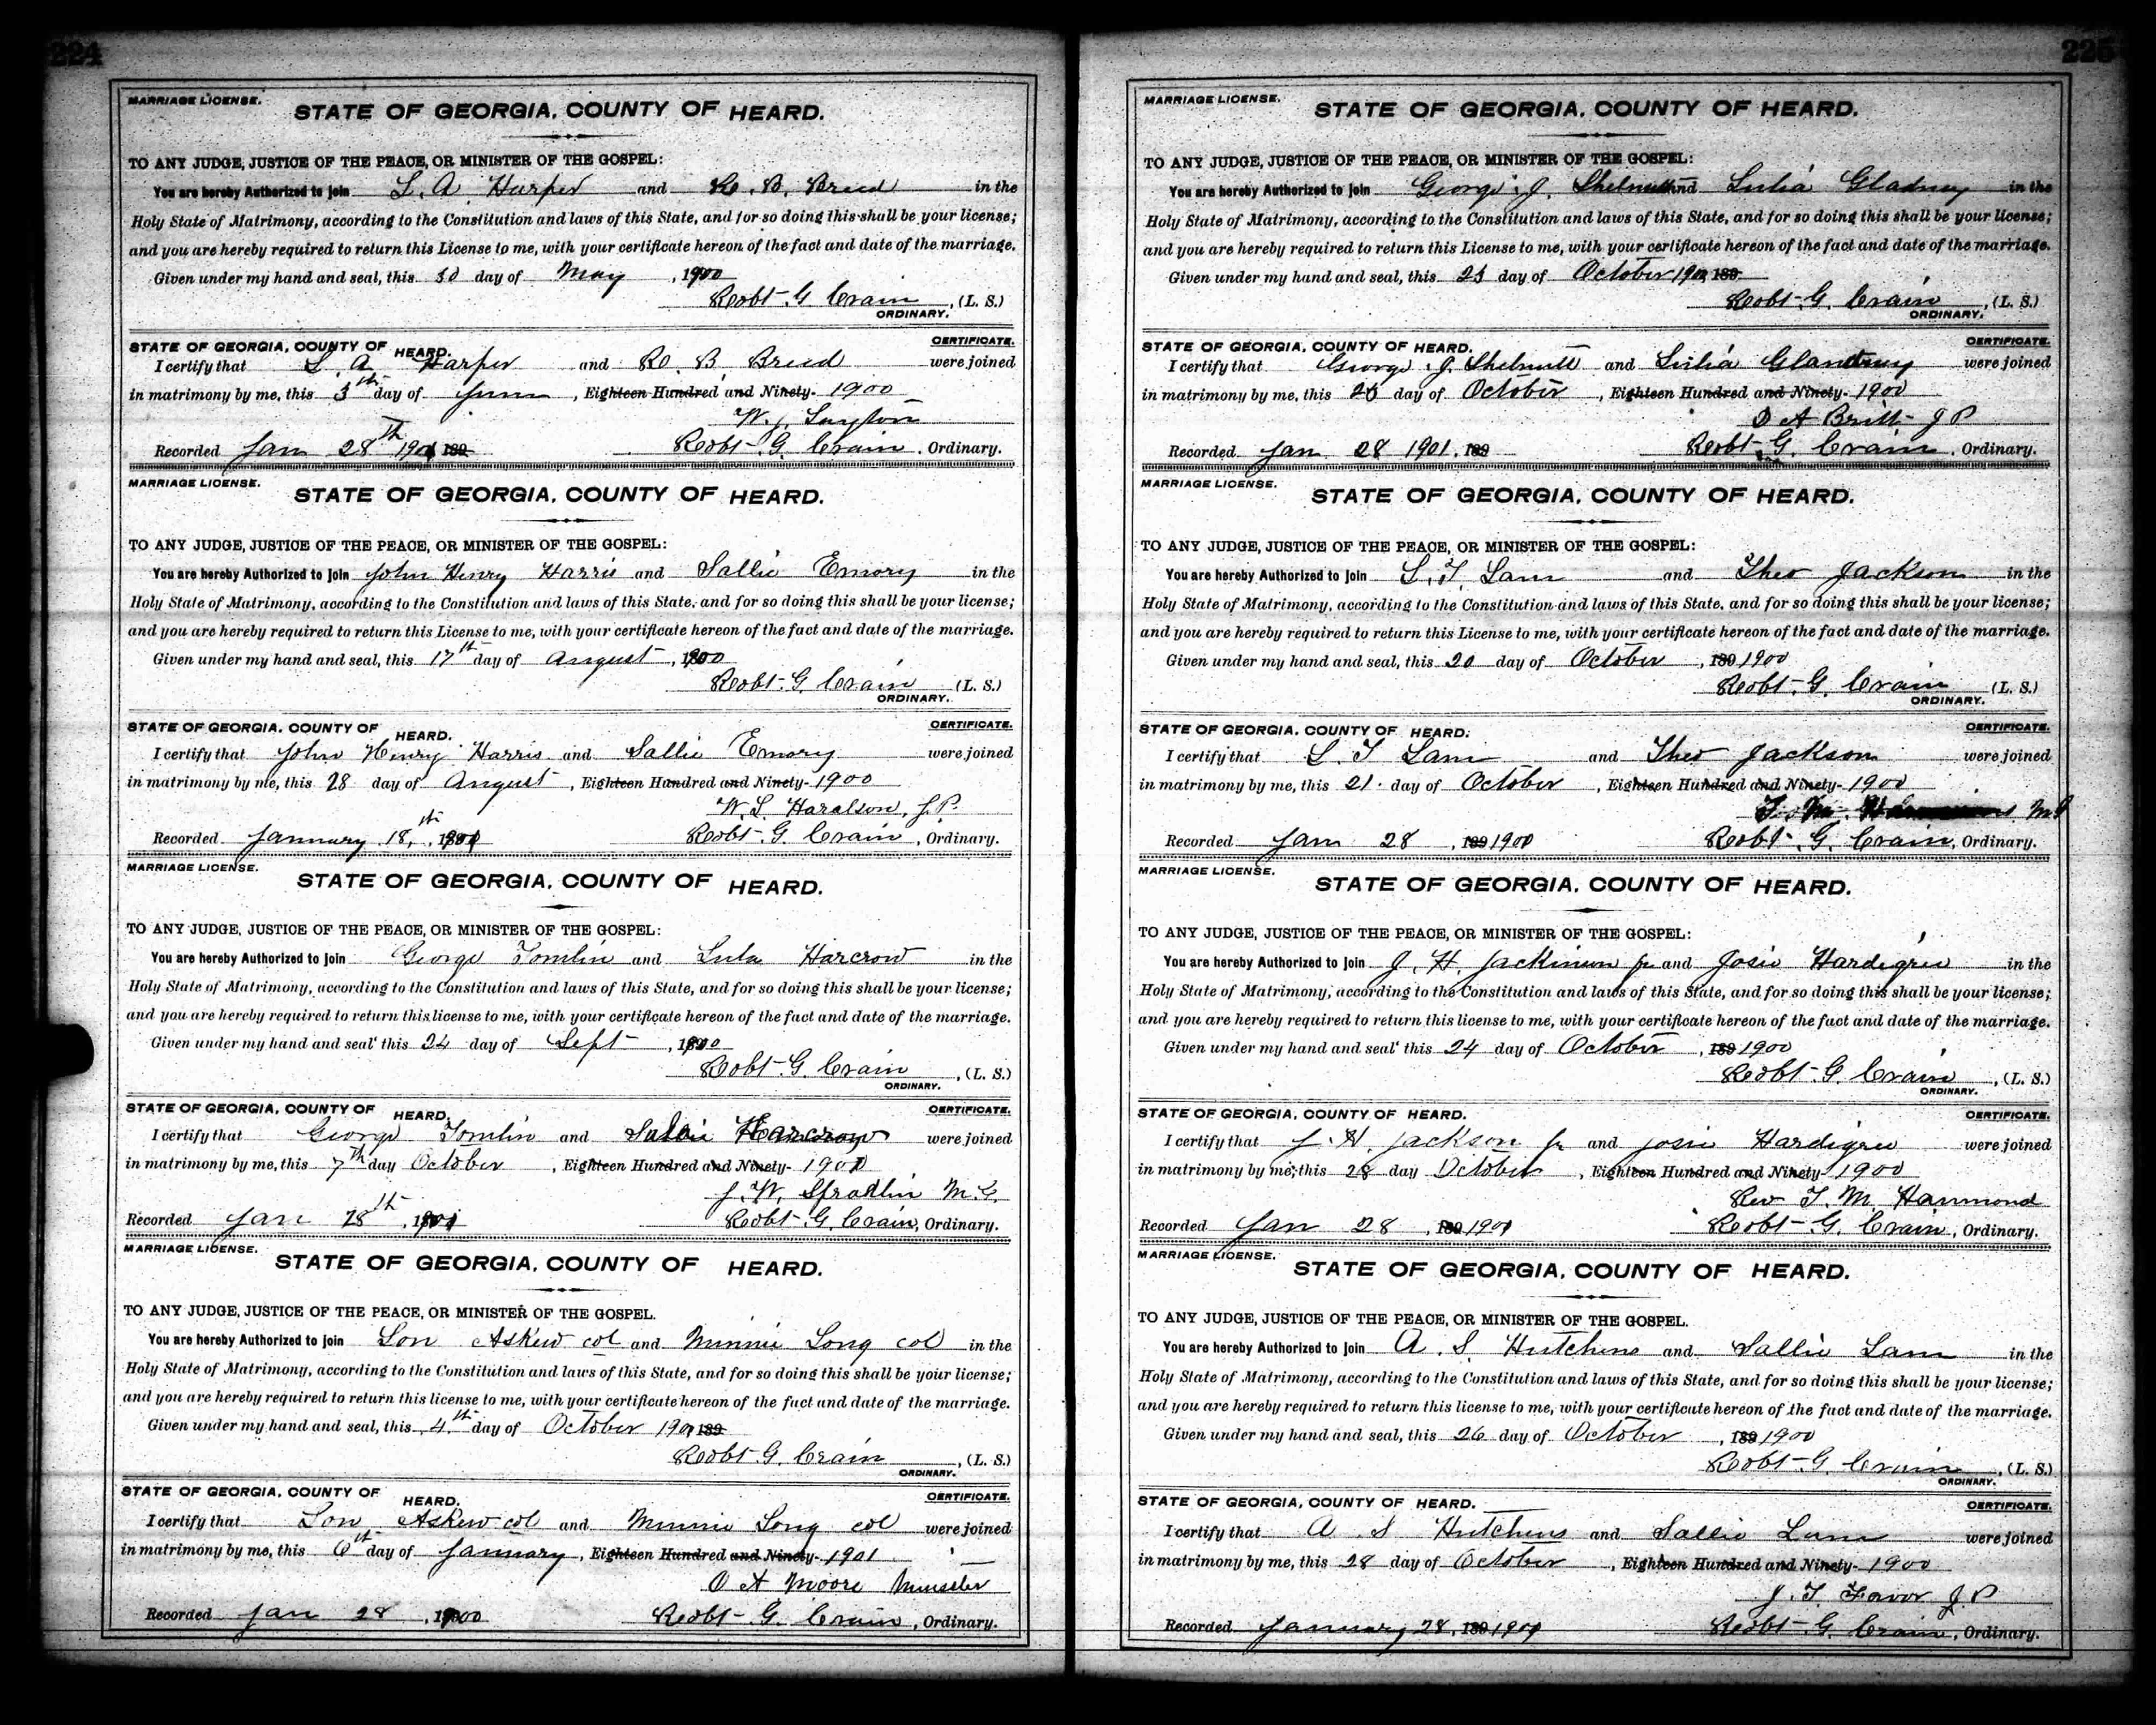 224
MARRIAGE LICENSE.
STATE OF GEORGIA, COUNTY OF HEARD.
TO ANY JUDGE, JUSTICE OF THE PEACE, OR MINISTER OF THE GOSPEL:
You are hereby Authorized to join L. A. Harper and Ro. B. Breed in the
Holy State of Matrimony, according to the Constitution and laws of this State, and for so doing this shall be your license;
and you are hereby required to return this License to me, with your certificate hereon of the fact and date of the marriage.
Given under my hand and seal, this 30 day of May, 1900
Robt. G. Crain, (L. S.)
ORDINARY.
STATE OF GEORGIA, COUNTY OF HEARD. CERTIFICATE.
I certify that L. A. Harper and Ro. B Breed were joined
in matrimony by me, this 3th day of June, Eighteen Hundred and Ninety- 1900
W. J.
Recorded Jan 28th 1901 189 Robt. G. Crain, Ordinary.
MARRIAGE LICENSE.
STATE OF GEORGIA, COUNTY OF HEARD.
TO ANY JUDGE, JUSTICE OF THE PEACE, OR MINISTER OF THE GOSPEL:
You are hereby Authorized to join John Henry Harris and Sallie Emory in the
Holy State of Matrimony, according to the Constitution and laws of this State, and for so doing this shall be your license;
and you are hereby required to return this License to me, with your certificate hereon of the fact and date of the marriage.
Given under my hand and seal, this 17th day of August, 1900
Robt. G. Crain (L. S.)
ORDINARY.
STATE OF GEORGIA, COUNTY OF HEARD. CERTIFICATE.
I certify that John Henry Harris and Sallie Emory were joined
in matrimony by me, this 28 day of August, Eighteen Hundred and Ninety- 1900
W. L. Haralson, J. P.
Recorded January 18th, 1901 Robt. G. Crain, Ordinary.
MARRIAGE LICENSE.
STATE OF GEORGIA, COUNTY OF HEARD.
TO ANY JUDGE, JUSTICE OF THE PEACE, OR MINISTER OF THE GOSPEL:
You are hereby Authorized to join George Tomlin and Lula Harcrow in the
Holy State of Matrimony, according to the Constitution and laws of this State, and for so doing this shall be your license;
and you are hereby required to return this license to me, with your certificate hereon of the fact and date of the marriage.
Given under my hand and seal this 24 day of Sept, 1900
Robt. G. Crain, (L. S.)
ORDINARY.
STATE OF GEORGIA, COUNTY OF HEARD. CERTIFICATE.
I certify that George Tomlin and Harcrow were joined
in matrimony by me, this 7th day October, Eighteen Hundred and Ninety- 1900
J. W. Spradlin M. G.
Recorded Jan 28th, 1901 Robt. G. Crain, Ordinary.
MARRIAGE LICENSE.
STATE OF GEORGIA, COUNTY OF HEARD.
TO ANY JUDGE, JUSTICE OF THE PEACE, OR MINISTER OF THE GOSPEL.
You are hereby Authorized to join Lon Askew col and Minnie Long col in the
Holy State of Matrimony, according to the Constitution and laws of this State, and for so doing this shall be your license;
and you are hereby required to return this license to me, with your certificate hereon of the fact and date of the marriage.
Given under my hand and seal, this 4th day of October 190 189
Robt. G. Crain, (L. S.)
ORDINARY.
STATE OF GEORGIA, COUNTY OF HEARD. CERTIFICATE.
I certify that Lon Askew col and Minnie Long col were joined
in matrimony by me, this 6th day of January, Eighteen Hundred and Ninety- 1901
O A Moore
Recorded Jan 28, 1900 Robt. G. Crain, Ordinary.
225
MARRIAGE LICENSE.
STATE OF GEORGIA, COUNTY OF HEARD.
TO ANY JUDGE, JUSTICE OF THE PEACE, OR MINISTER OF THE GOSPEL:
You are hereby Authorized to join George J. Shelnutt and Lulia Gladney in the
Holy State of Matrimony, according to the Constitution and laws of this State, and for so doing this shall be your license;
and you are hereby required to return this License to me, with your certificate hereon of the fact and date of the marriage.
Given under my hand and seal, this 25 day of October 1900, 189
Robt. G. Crain, (L. S.)
ORDINARY.
STATE OF GEORGIA, COUNTY OF HEARD. CERTIFICATE.
I certify that George J. Shelnutt and Lulia were joined
in matrimony by me, this 26 day of October, Eighteen Hundred and Ninety- 1900
D A Britt J P
Recorded Jan 28 1901, 189 Robt. G. Crain, Ordinary.
MARRIAGE LICENSE.
STATE OF GEORGIA, COUNTY OF HEARD.
TO ANY JUDGE, JUSTICE OF THE PEACE, OR MINISTER OF THE GOSPEL:
You are hereby Authorized to join L. T. Lane and Theo Jackson in the
Holy State of Matrimony, according to the Constitution and laws of this State, and for so doing this shall be your license;
and you are hereby required to return this License to me, with your certificate hereon of the fact and date of the marriage.
Given under my hand and seal, this 20 day of October, 189 1900
Robt. G. Crain (L. S.)
ORDINARY.
STATE OF GEORGIA, COUNTY OF HEARD. CERTIFICATE.
I certify that L T Lane and Theo Jackson were joined
in matrimony by me, this 21. day of October, Eighteen Hundred and Ninety- 1900
T. M.
Recorded Jan 28, 189 1901 Robt. G. Crain, Ordinary.
MARRIAGE LICENSE.
STATE OF GEORGIA, COUNTY OF HEARD.
TO ANY JUDGE, JUSTICE OF THE PEACE, OR MINISTER OF THE GOSPEL:
You are hereby Authorized to join J. H. Jackinson Jr and Josie Hardigree in the
Holy State of Matrimony, according to the Constitution and laws of this State, and for so doing this shall be your license;
and you are hereby required to return this license to me, with your certificate hereon of the fact and date of the marriage.
Given under my hand and seal this 24 day of October, 189 1900
Robt. G. Crain, (L. S.)
ORDINARY.
STATE OF GEORGIA, COUNTY OF HEARD. CERTIFICATE.
I certify that J. H. Jackson Jr and Josie Hardigree were joined
in matrimony by me, this 28 day October, Eighteen Hundred and Ninety- 1900
Rev T. M. Hammond
Recorded Jan 28, 189 1901 Robt. G. Crain, Ordinary.
MARRIAGE LICENSE.
STATE OF GEORGIA, COUNTY OF HEARD.
TO ANY JUDGE, JUSTICE OF THE PEACE, OR MINISTER OF THE GOSPEL.
You are hereby Authorized to join A. S. Hutchens and Sallie Lane in the
Holy State of Matrimony, according to the Constitution and laws of this State, and for so doing this shall be your license;
and you are hereby required to return this license to me, with your certificate hereon of the fact and date of the marriage.
Given under my hand and seal, this 26 day of October, 189 1900
Robt. G. Crain, (L. S.)
ORDINARY.
STATE OF GEORGIA, COUNTY OF HEARD. CERTIFICATE.
I certify that A S Hutchens and Sallie Lane were joined
in matrimony by me, this 28 day of October, Eighteen Hundred and Ninety- 1900
J. T. Favor J. P
Recorded January 28, 189 1901 Robt. G. Crain, Ordinary.